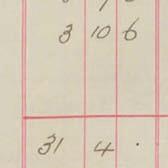 3 10 6
31 4 .